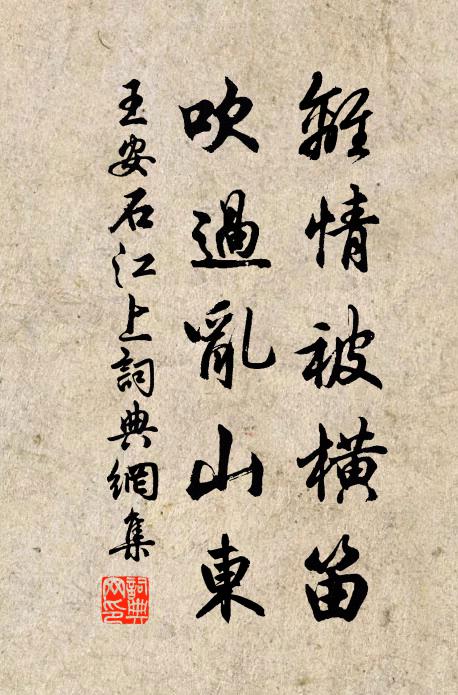 離情被橫笛
吹過亂山東
王安石江上詞典網集
詞典網印